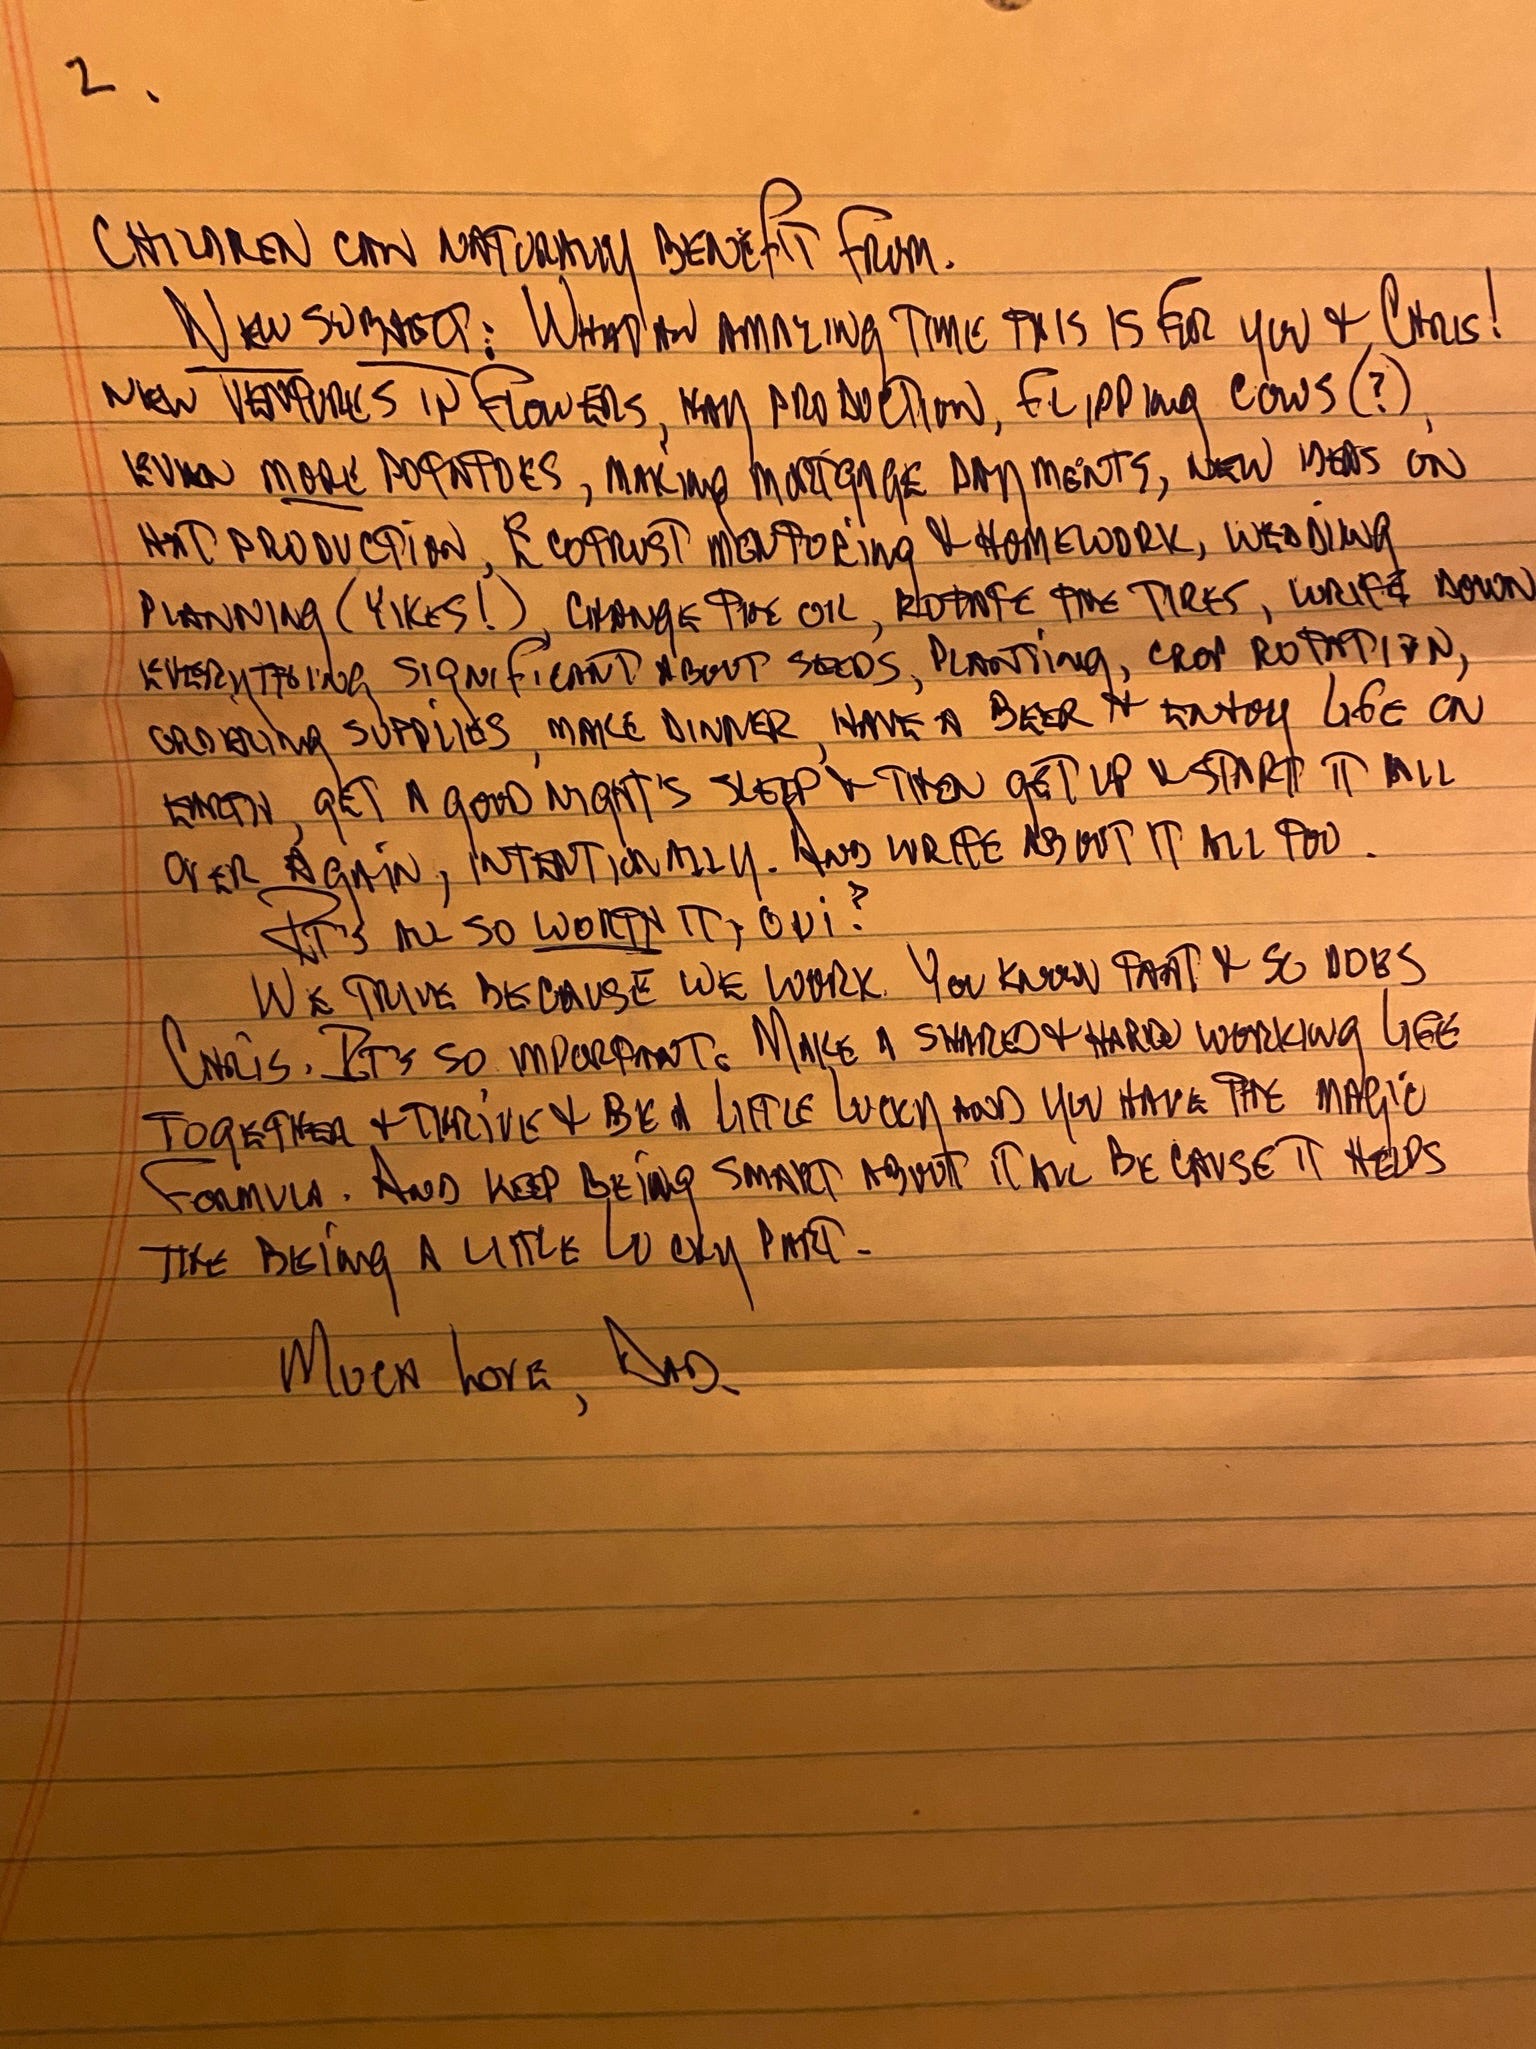 2.
CHILDREN CAN NATURALLY BENEFIT FROM.
NEW SUBJECT: WHAT AN AMAZING TIME THIS IS FOR YOU & CHRIS!
NEW VENTURES IN FLOWERS, HAY PRODUCTION, FLIPPING COWS (?),
EVEN MORE POTATOES, MAKING MORTGAGE PAYMENTS, NEW IDEAS ON
HAT PRODUCTION, ECOTRUST MENTORING & HOMEWORK, WEDDING
PLANNING (YIKES!), CHANGE THE OIL, ROTATE THE TIRES, WRITE DOWN
EVERYTHING SIGNIFICANT ABOUT SEEDS, PLANTING, CROP ROTATION,
ORDERING SUPPLIES, MAKE DINNER, HAVE A BEER & ENJOY LIFE ON
EARTH, GET A GOOD NIGHT'S SLEEP & THEN GET UP & START IT ALL
OVER AGAIN, INTENTIONALLY. AND WRITE ABOUT IT ALL TOO.
IT'S ALL SO WORTH IT, OUI?
WE TRIVE BECAUSE WE WORK. YOU KNOW THAT & SO DOES
CHRIS. IT'S SO IMPORTANT. MAKE A SHARED & HARD WORKING LIFE
TOGETHER & THRIVE & BE A LITTLE LUCKY AND YOU HAVE THE MAGIC
FORMULA. AND KEEP BEING SMART ABOUT IT ALL BECAUSE IT HELPS
THE BEING A LITTLE LUCKY PART.
MUCH LOVE, DAD.